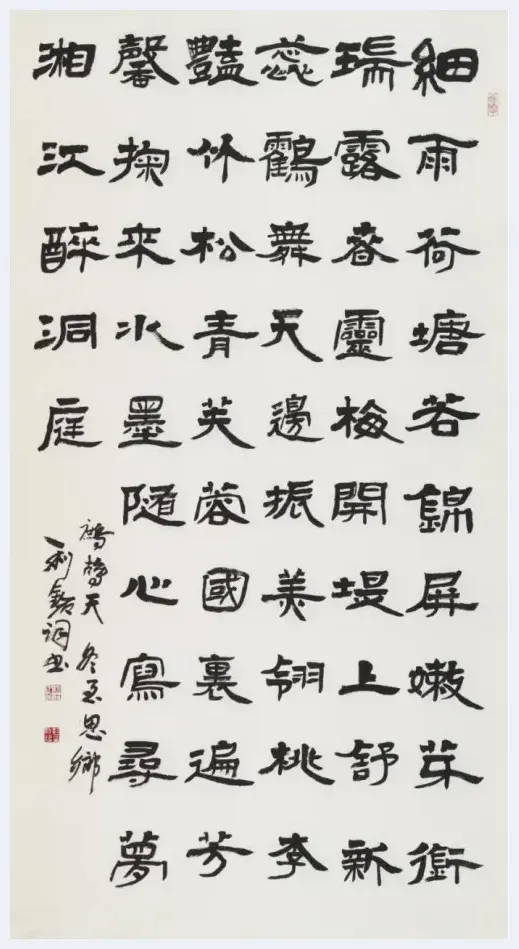 細雨荷塘若錦屏嫩芽銜
瑞露春靈梅開堤上舒新
蕊鶴舞天邊振美翎桃李
豔竹松青芙蓉國裏遍芳
馨掬來水墨隨心寫尋夢
湘江醉洞庭
鷓鴣天 冬至思鄉
利詞書